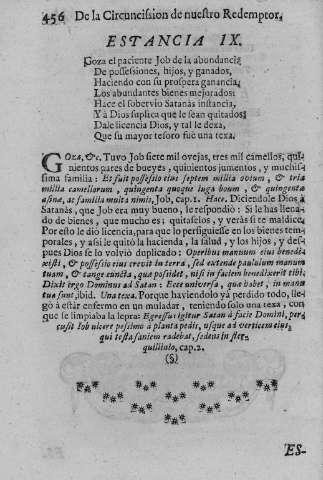 456 De la Circuncission de nuestro Redemptor.
ESTANCIA IX.
Goza el paciente Job de la abundancia
De possessiones, hijos, y ganados,
Haciendo con su prospera ganancia,
Los abundantes bienes mejorados:
Hace el sobervio Satanàs instancia,
Y à Dios suplica que le sean quitados:
Dale licencia Dios, y tal le dexa,
Que su mayor tesoro fuè una texa.
GOZA, &c. Tuvo Job siete mil ovejas, tres mil camellos, qui-
nientos pares de bueyes, quinientos jumentos, y muchis-
sima familia: Et fuit possessio eius septem millia ovium, & tria
millia camellorum, quingenta quoque iuga boum, & quingentæ
asinæ, ac familia multa nimis, Job, cap. 1. Hace. Diciendole Dios à
Satanàs, que Job era muy bueno, le respondiò: Si le has llena-
do de bienes, que mucho es: quitaselos, y veràs si te maldice.
Por esto le diò licencia, para que lo persiguiesse en los bienes tem-
porales, y assi le quitò la hacienda, la salud, y los hijos, y des-
pues Dios se lo volviò duplicado: Operibus manuum eius benedi-
xisti, & possessio eius crevit in terra, sed extende paululum manum
tuam, & tange cuncta, quæ possidet, nisi in faciem benedixerit tibi:
Dixit ergo Dominus ad Satan: Ecce universa, quæ habet, in manu
tua sunt, ibid. Una texa. Porque haviendolo yà perdido todo, lle-
gò à estàr enfermo en un muladar, teniendo solo una texa, con
que se limpiaba la lepra: Egressus igitur Satan à facie Domini, per-
cussit Job ulcere pessimo à planta pedis, usque ad verticem eius,
qui testa saniem radebat, sedens in ster-
quilinio, cap. 2.
(§)
ES-